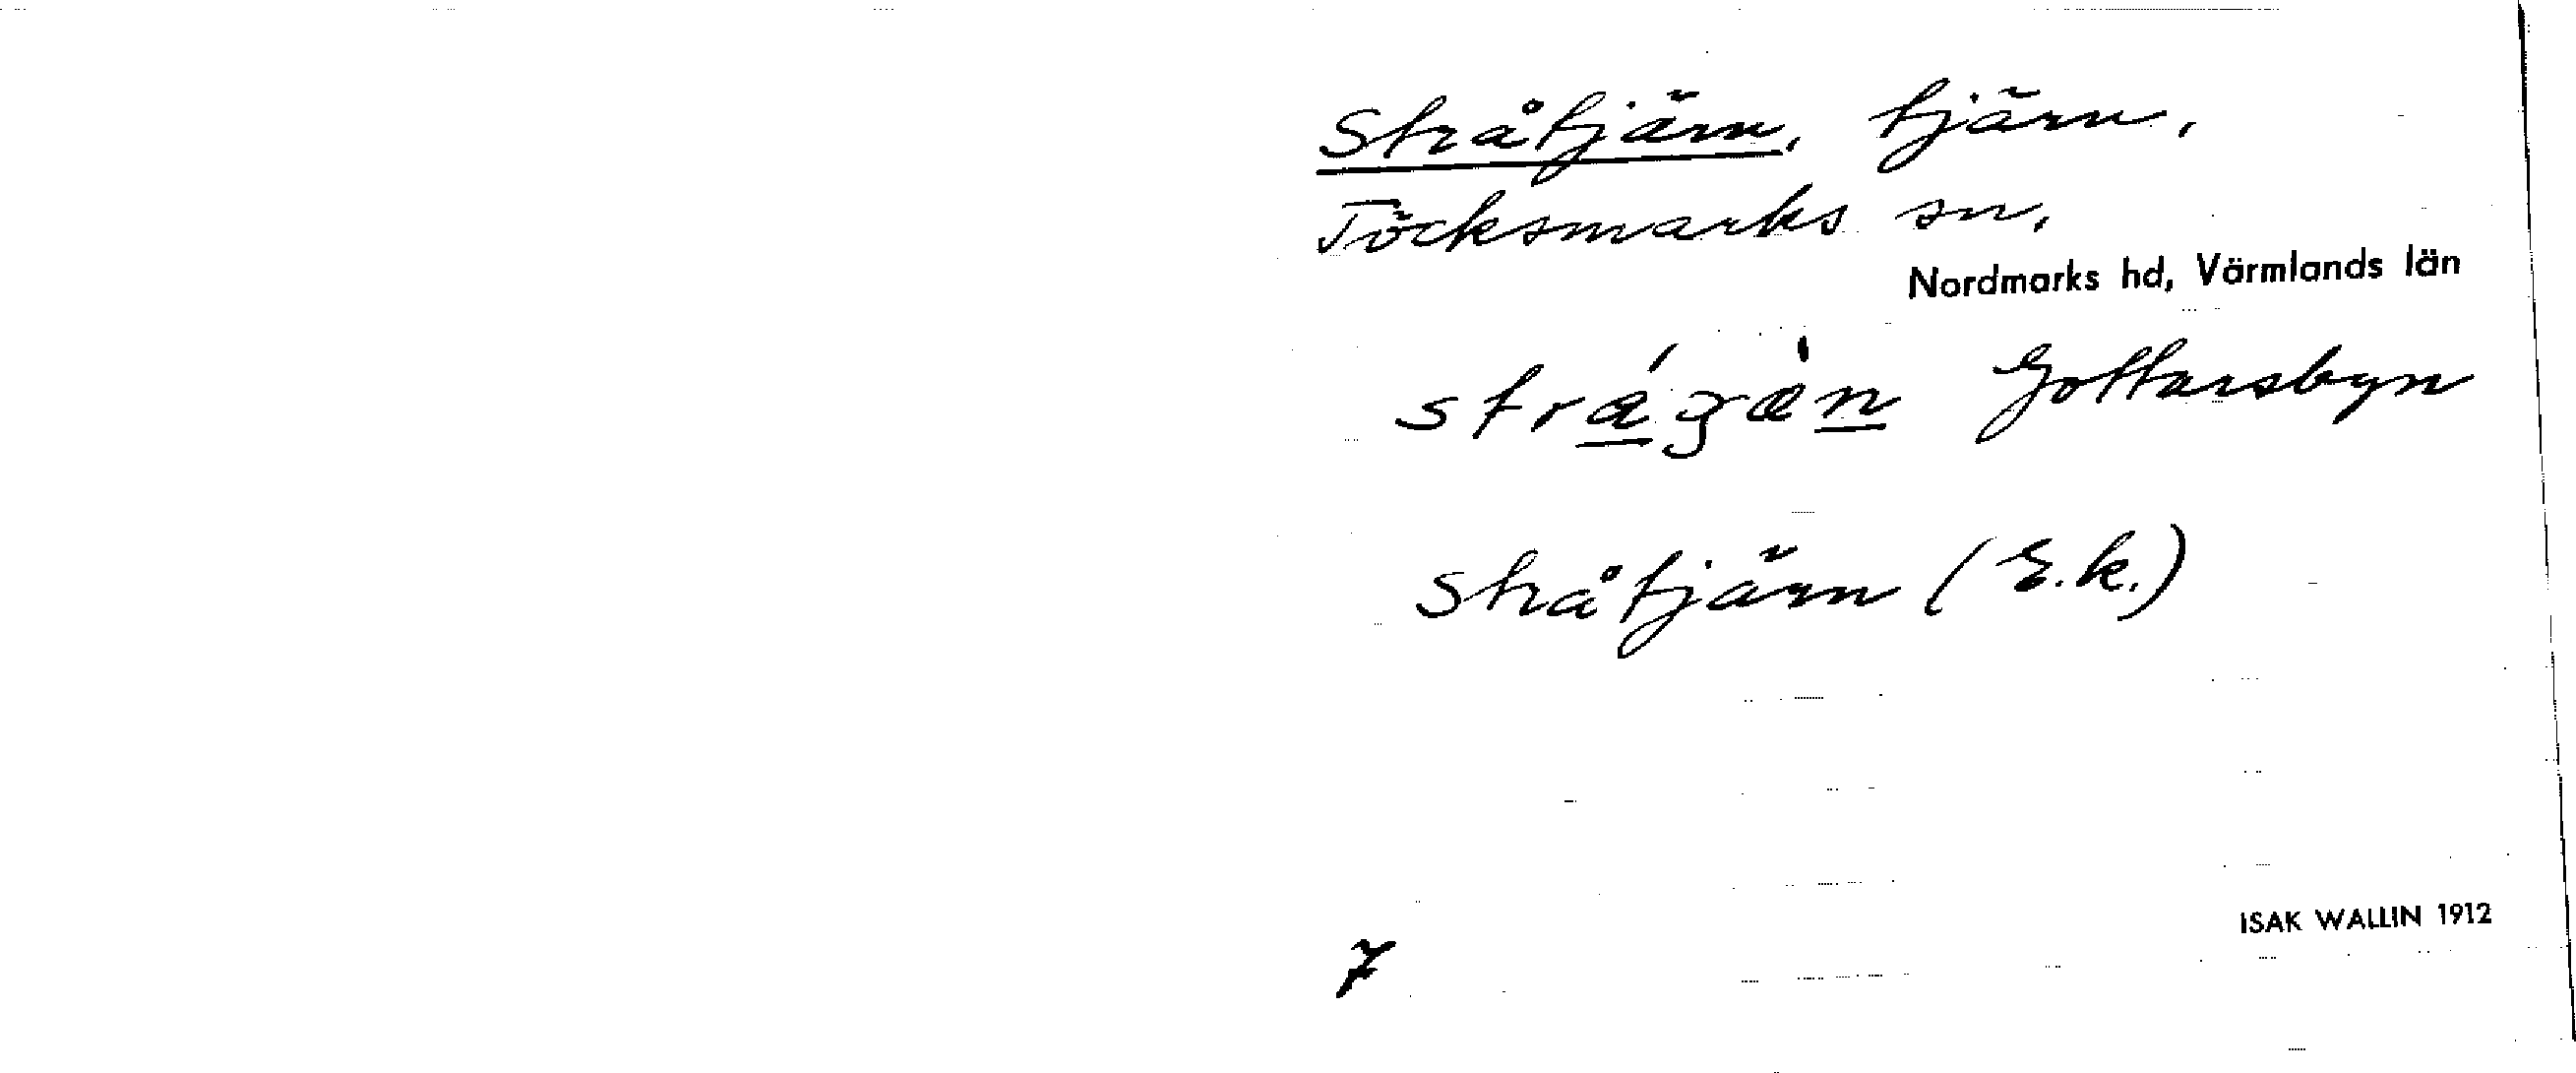 Stråtjärn, tjärn,
Töcksmarks sn.
Nordmarks hd, Värmlands län
Gottarsbyn
Stråtjärn (E.k.)
ISAK WALLIN 1912
7